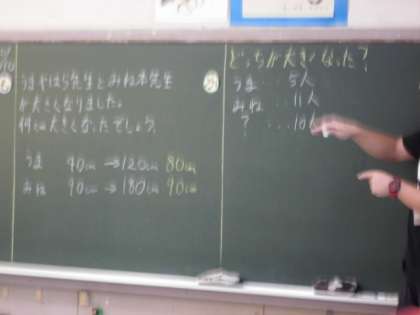 うまやはら先生とみね本先生
が大きくなりました。
何cm大きくなったでしょう。
うま 40cm → 120cm 80cm
みね 90cm → 180cm 90cm
どっちが大きくなった?
うま … 5人
みね … 11人
? … 10人